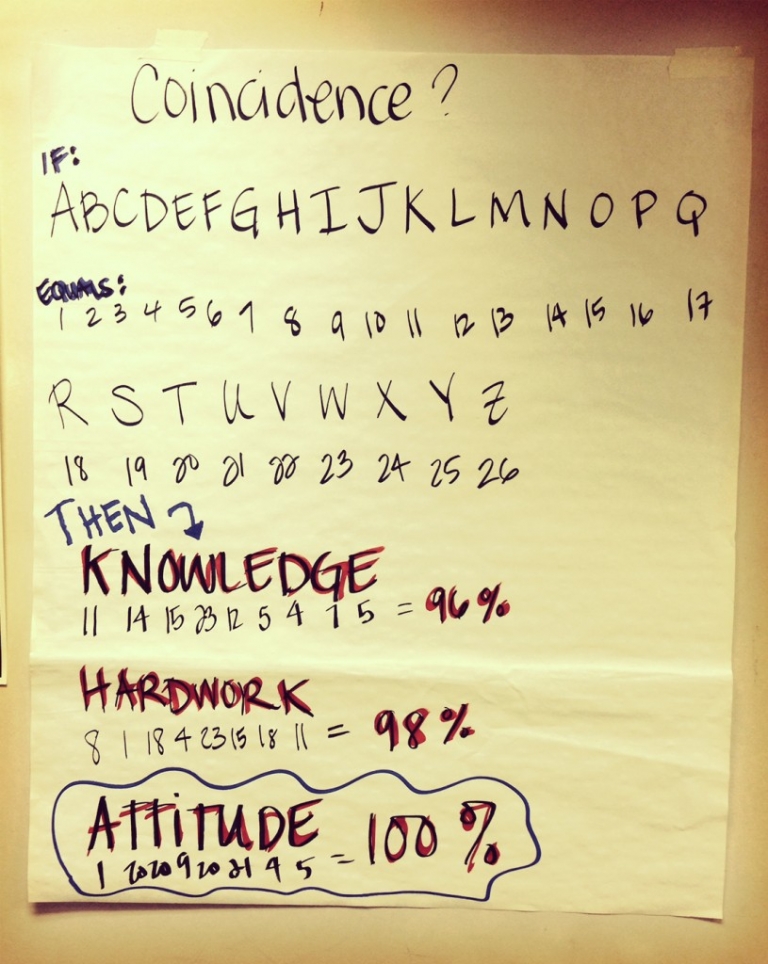 Coincidence?
IF:
A B C D E F G H I J K L M N O P Q
EQUALS:
1 2 3 4 5 6 7 8 9 10 11 12 13 14 15 16 17
R S T U V W X Y Z
18 19 20 21 22 23 24 25 26
THEN ↴
KNOWLEDGE
11 14 15 23 12 5 4 7 5 = 96%
HARDWORK
8 1 18 4 23 15 18 11 = 98%
ATTiTUDE
1 20 20 9 20 21 4 5 = 100%